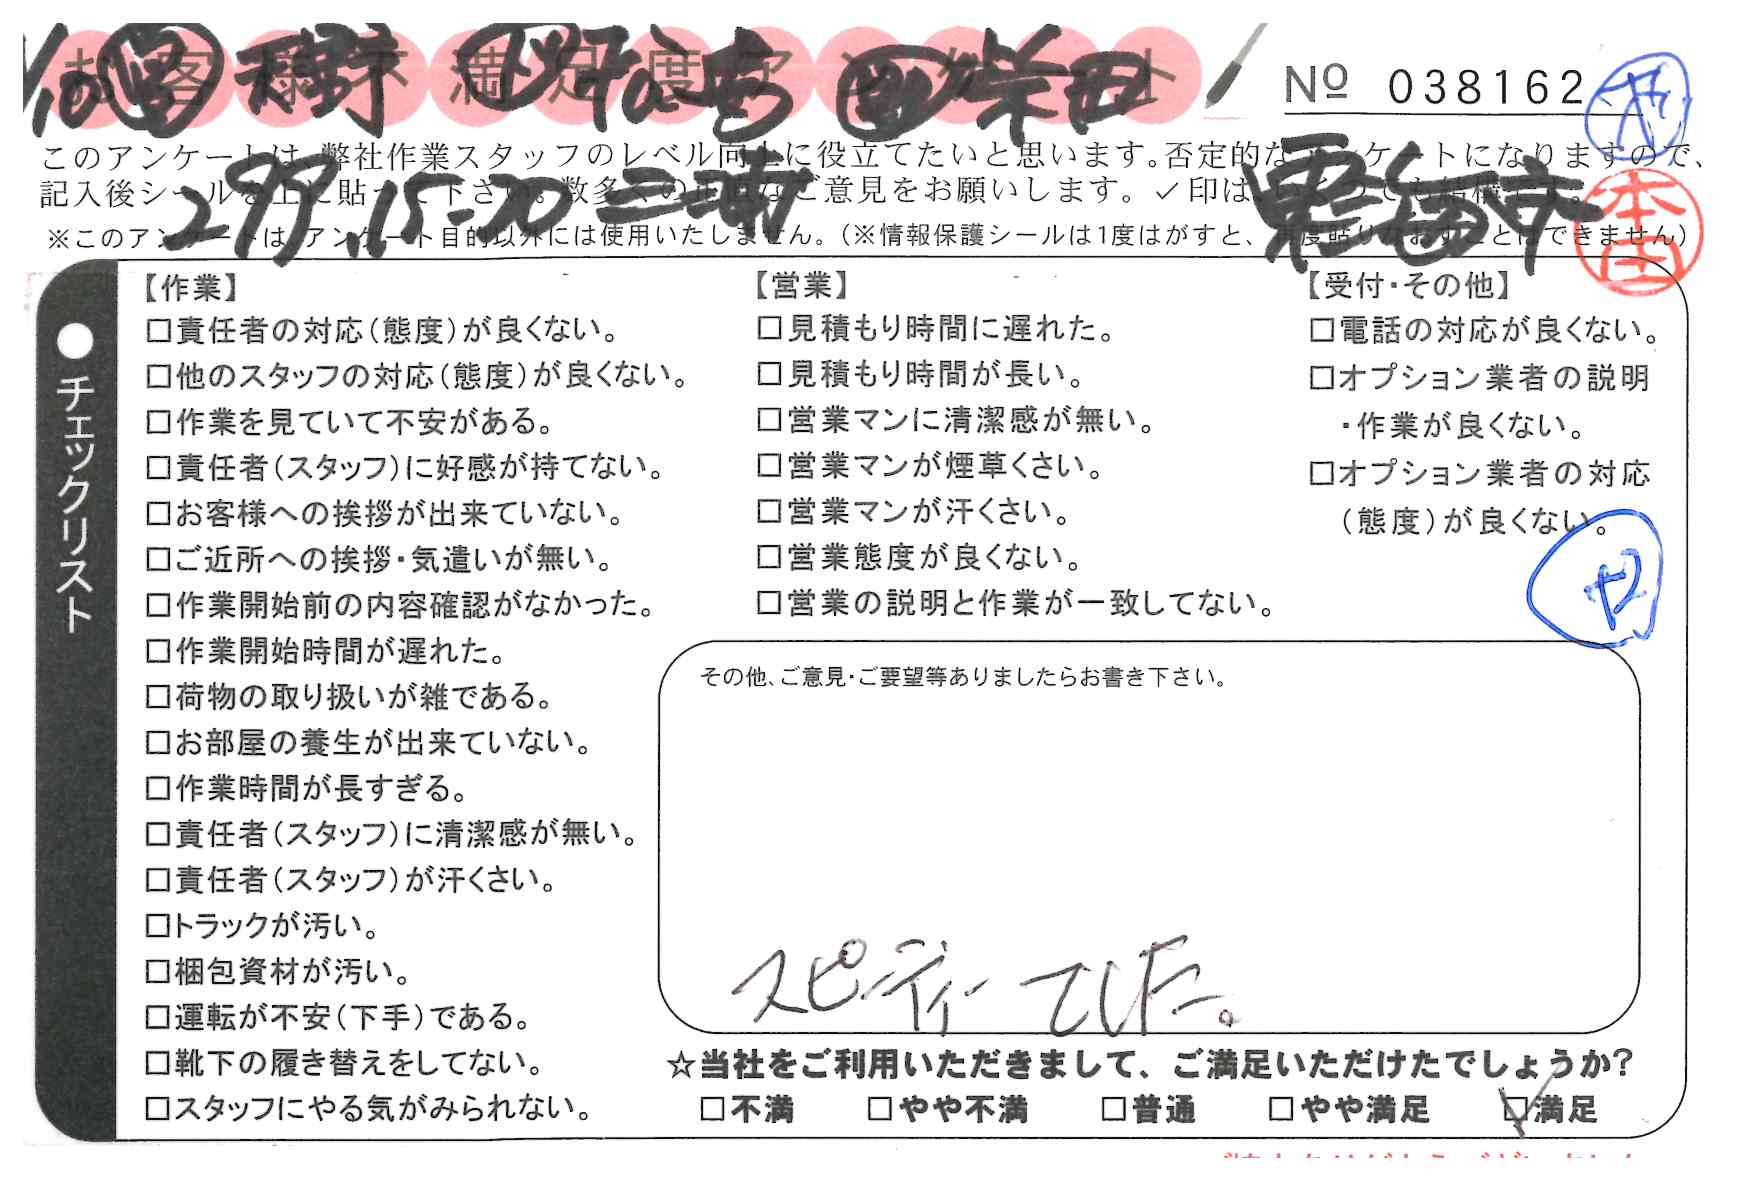 お客様不満足度アンケート
柴田
No 038162
このアンケートは、弊社作業スタッフのレベル向上に役立てたいと思います。否定的なアンケートになりますので、
記入後シールを上に貼って下さい。数多くの正直なご意見をお願いします。✓印は、いくつでも結構です。
299.15-20 三浦
※このアンケートは、アンケート目的以外には使用いたしません。(※情報保護シールは1度はがすと、再度貼りなおすことはできません)
本田
チェックリスト
【作業】
□責任者の対応(態度)が良くない。
□他のスタッフの対応(態度)が良くない。
□作業を見ていて不安がある。
□責任者(スタッフ)に好感が持てない。
□お客様への挨拶が出来ていない。
□ご近所への挨拶・気遣いが無い。
□作業開始前の内容確認がなかった。
□作業開始時間が遅れた。
□荷物の取り扱いが雑である。
□お部屋の養生が出来ていない。
□作業時間が長すぎる。
□責任者(スタッフ)に清潔感が無い。
□責任者(スタッフ)が汗くさい。
□トラックが汚い。
□梱包資材が汚い。
□運転が不安(下手)である。
□靴下の履き替えをしてない。
□スタッフにやる気がみられない。
【営業】
□見積もり時間に遅れた。
□見積もり時間が長い。
□営業マンに清潔感が無い。
□営業マンが煙草くさい。
□営業マンが汗くさい。
□営業態度が良くない。
□営業の説明と作業が一致してない。
【受付・その他】
□電話の対応が良くない。
□オプション業者の説明
・作業が良くない。
□オプション業者の対応
(態度)が良くない。
その他、ご意見・ご要望等ありましたらお書き下さい。
スピーディーでした。
☆当社をご利用いただきまして、ご満足いただけたでしょうか?
□不満 □やや不満 □普通 □やや満足 ☑満足